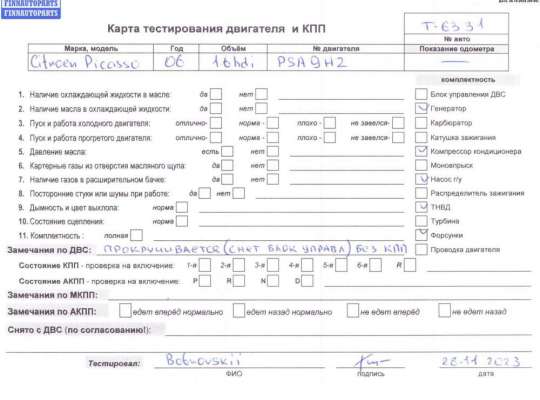 FINNAUTOPARTS
FINNAUTOPARTS
Карта тестирования двигателя и КПП
T-6331
№ авто
Марка, модель Год Объём № двигателя Показание одометра
Citroen Picasso 06 1.6hdi PSA9HZ —
комплектность
1. Наличие охлаждающей жидкости в масле: да нет Блок управлении ДВС
2. Наличие масла в охлаждающей жидкости: да нет Генератор
3. Пуск и работа холодного двигателя: отлично- норма - плохо - не завелся- Карбюратор
4. Пуск и работа прогретого двигателя: отлично- норма - плохо - не завелся- Катушка зажигания
5. Давление масла: есть нет Компрессор кондиционера
6. Картерные газы из отверстия масляного щупа: да нет Моновпрыск
7. Наличие газов в расширительном бачке: да нет Насос г/у
8. Посторонние стуки или шумы при работе: да нет Распределитель зажигания
9. Дымность и цвет выхлопа: норма ТНВД
10. Состояние сцепления: норма Турбина
11. Комплектность : полная Форсунки
Замечания по ДВС: ПРОКРУЧИВАЕТСЯ (СНЕТ БЛОК УПРАВЛ) БЕЗ КПП Проводка двигателя
Состояние КПП - проверка на включение: 1-я 2-я 3-я 4-я 5-я 6-я R
Состояние АКПП - проверка на включение: P R N D
Замечания по МКПП:
Замечания по АКПП: едет вперёд нормально едет назад нормально не едет вперёд не едет назад
Снято с ДВС (по согласованию!):
Тестировал: Botnovskii 28.11.2023
ФИО подпись дата